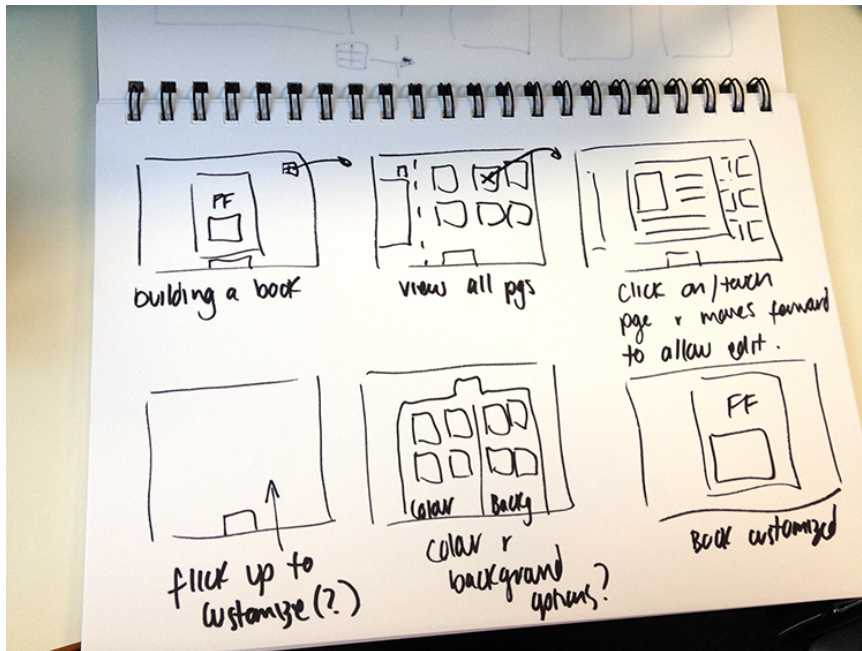 FF
building a book
view all pgs
click on/touch
pge + moves forward
to allow edit.
flick up to
customize(?)
Colour
Backg
Colour +
background
options?
FF
Book customized